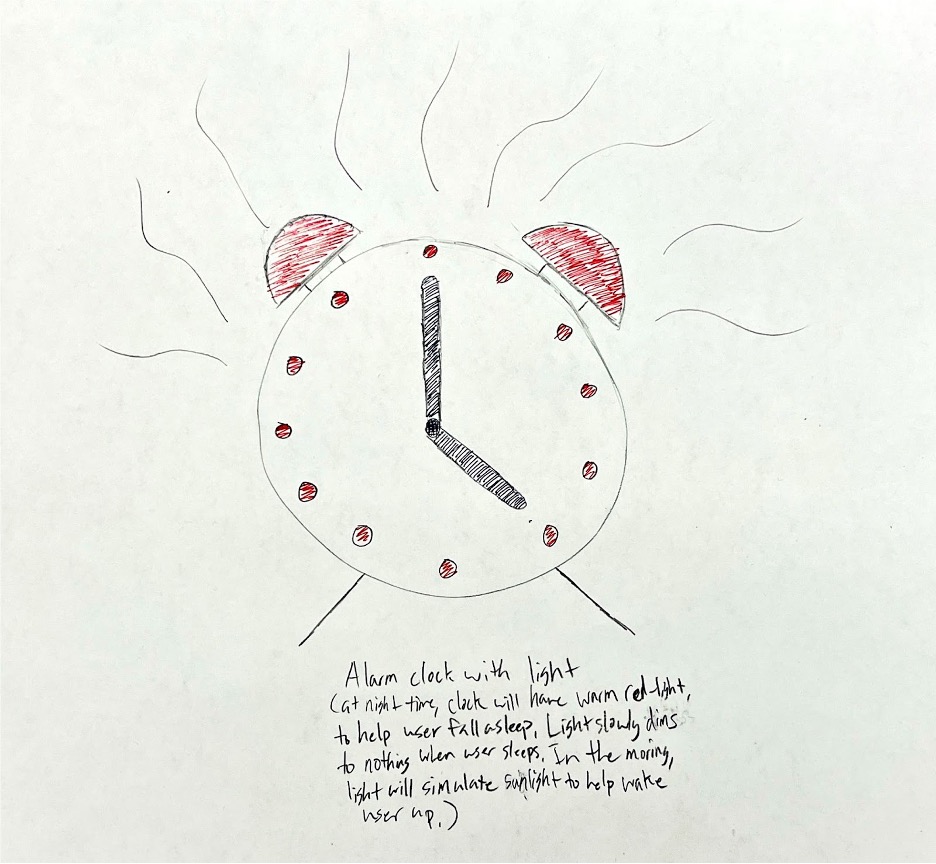 Alarm clock with light
(at night time, clock will have warm red-light,
to help user fall asleep. Light slowly dims
to nothing when user sleeps. In the moring,
light will simulate sunlight to help wake
user up.)